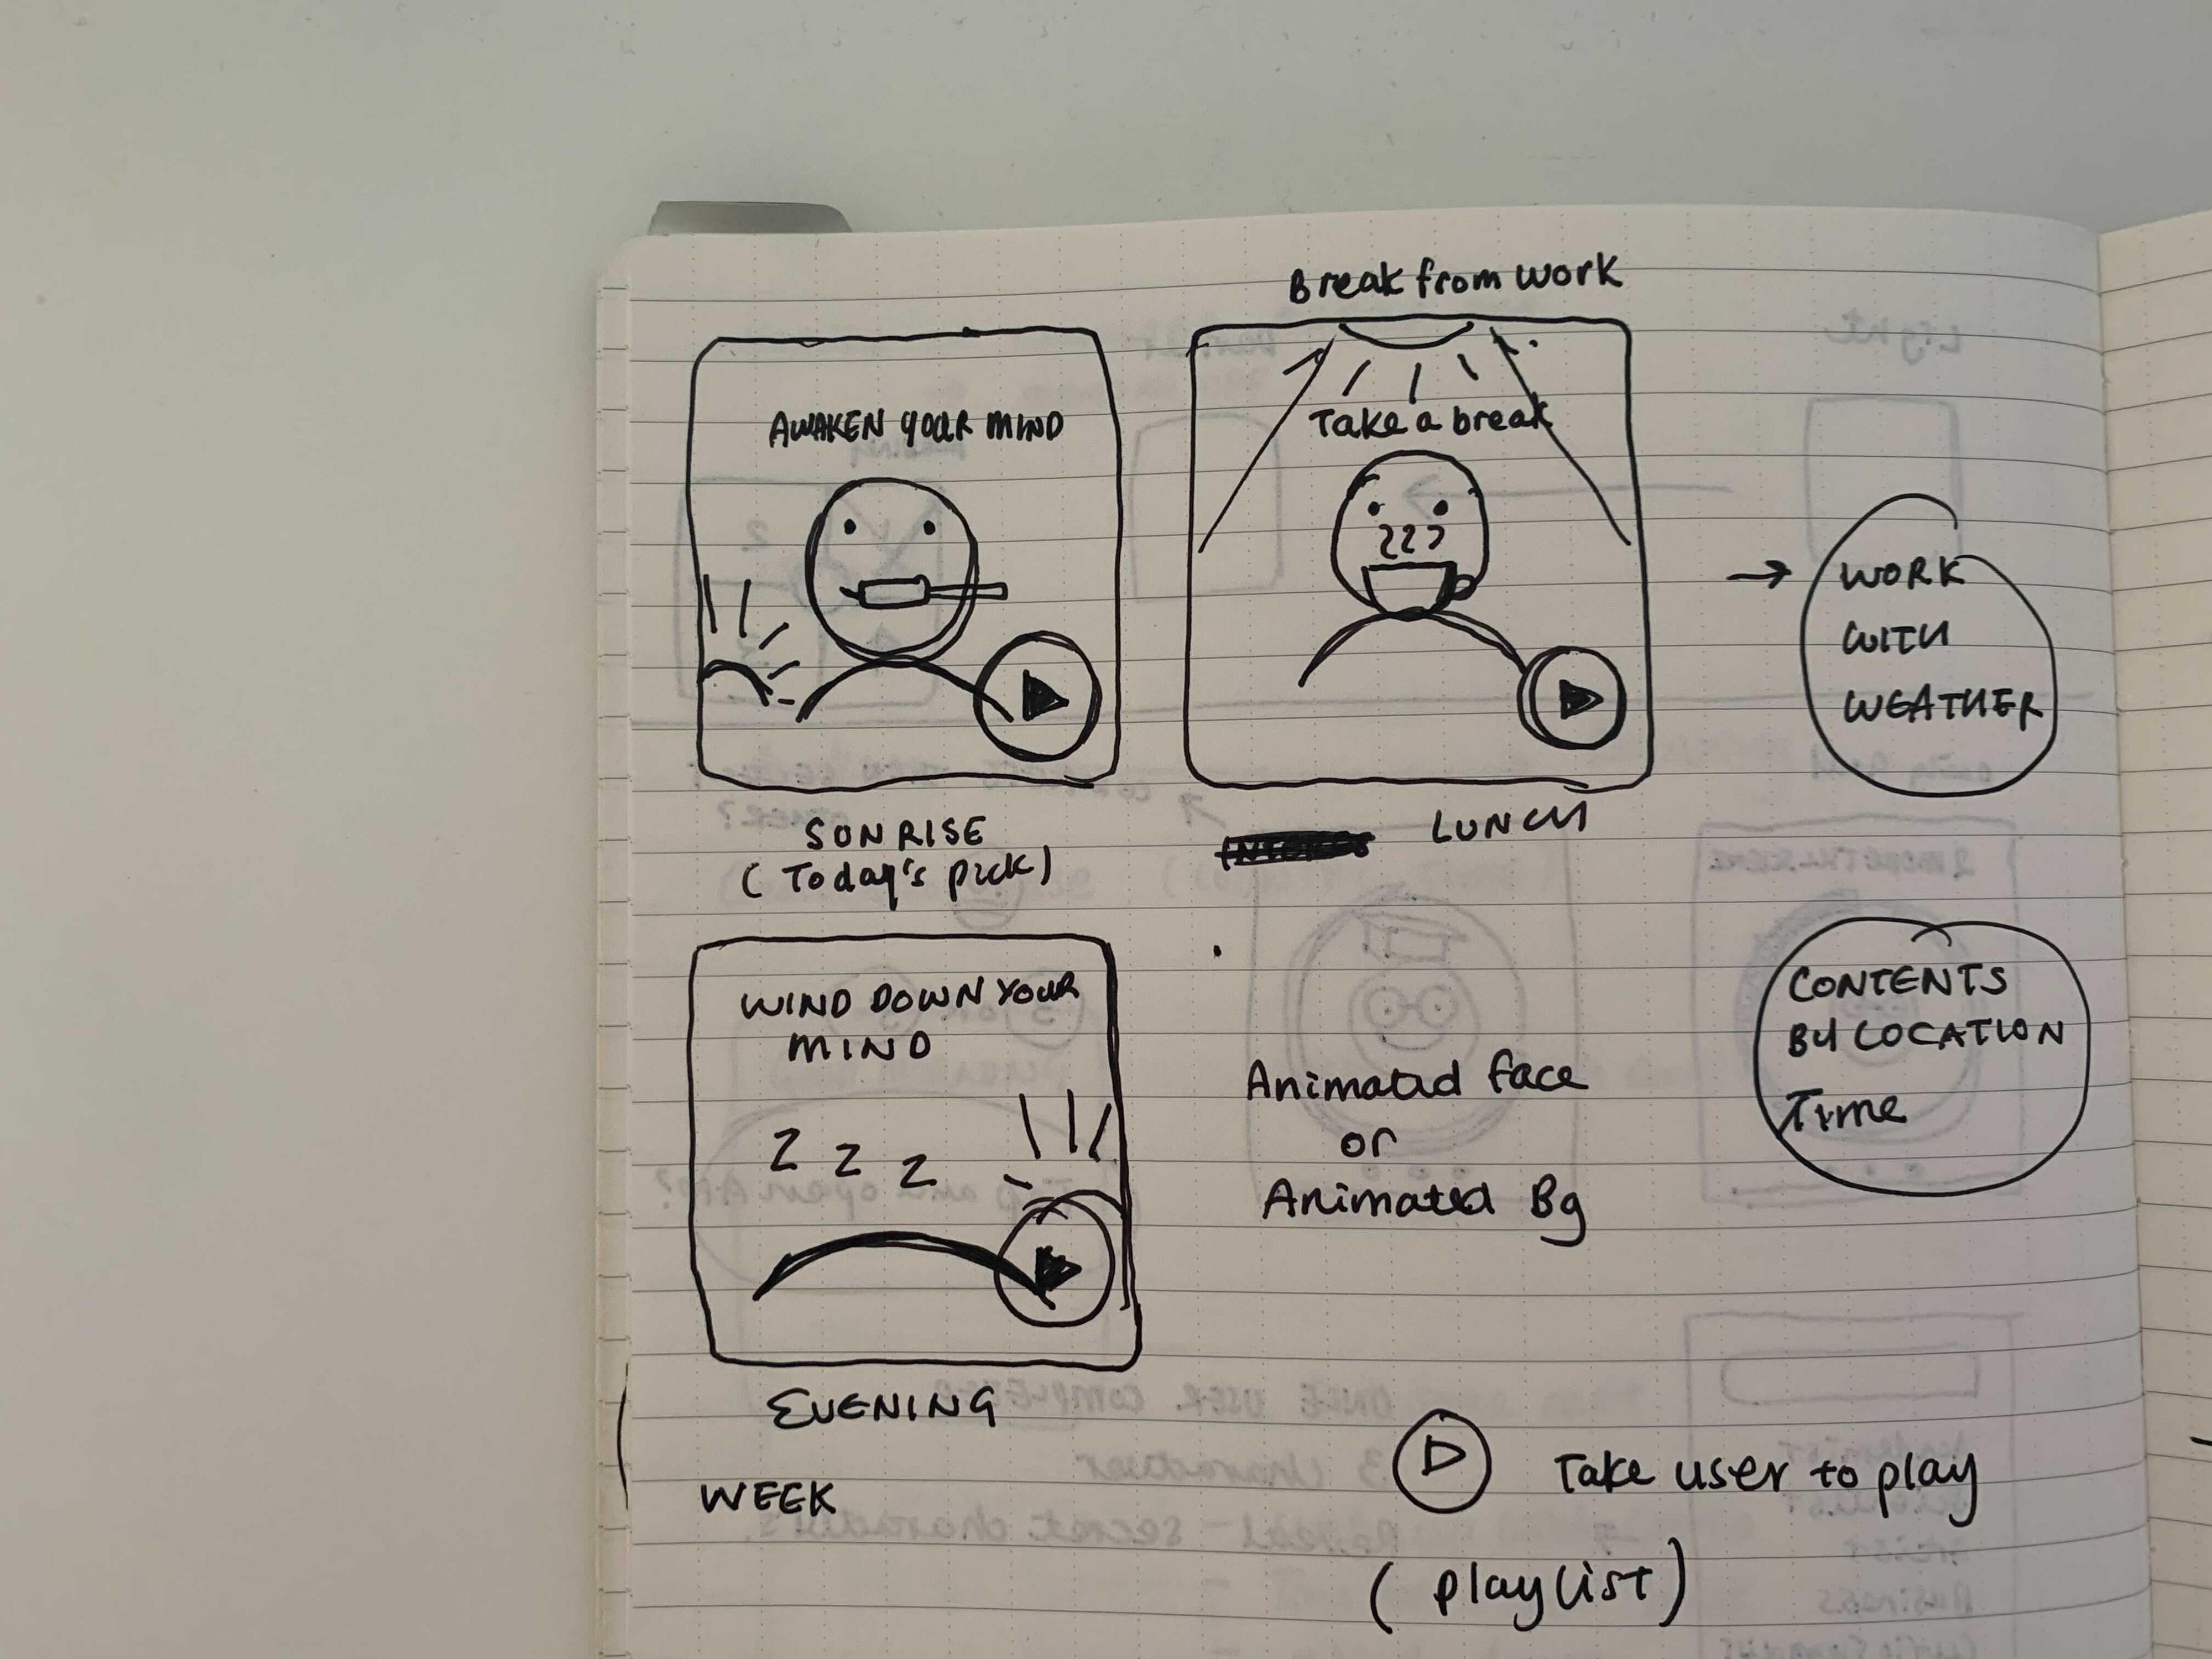 Break from work
AWAKEN YOUR MIND
Take a break
→ WORK
WITH
WEATHER
SUNRISE
(Today's pick)
LUNCH
WIND DOWN YOUR
MIND
Z Z Z
Animated face
or
Animated Bg
CONTENTS
BY LOCATION
Time
EVENING
WEEK
Take user to play
(playlist)